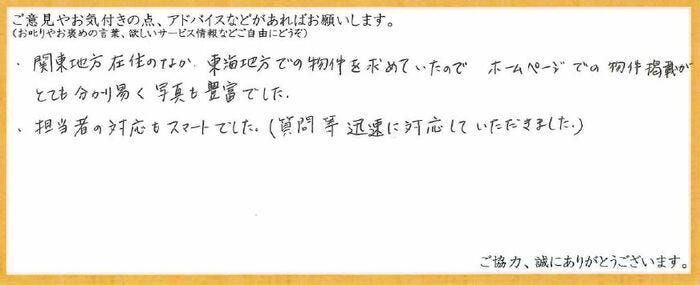 ご意見やお気付きの点、アドバイスなどがあればお願いします。
(お叱りやお褒めの言葉、欲しいサービス情報などご自由にどうぞ)
・関東地方在住のなか、東海地方での物件を求めていたので ホームページでの物件掲載が
とても分かり易く写真も豊富でした.
・担当者の対応もスマートでした。(質問等迅速に対応していただきました.)
ご協力、誠にありがとうございます。